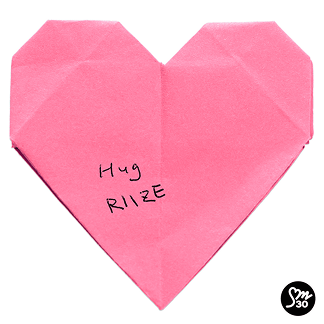 Hug
RIIZE
SM
30